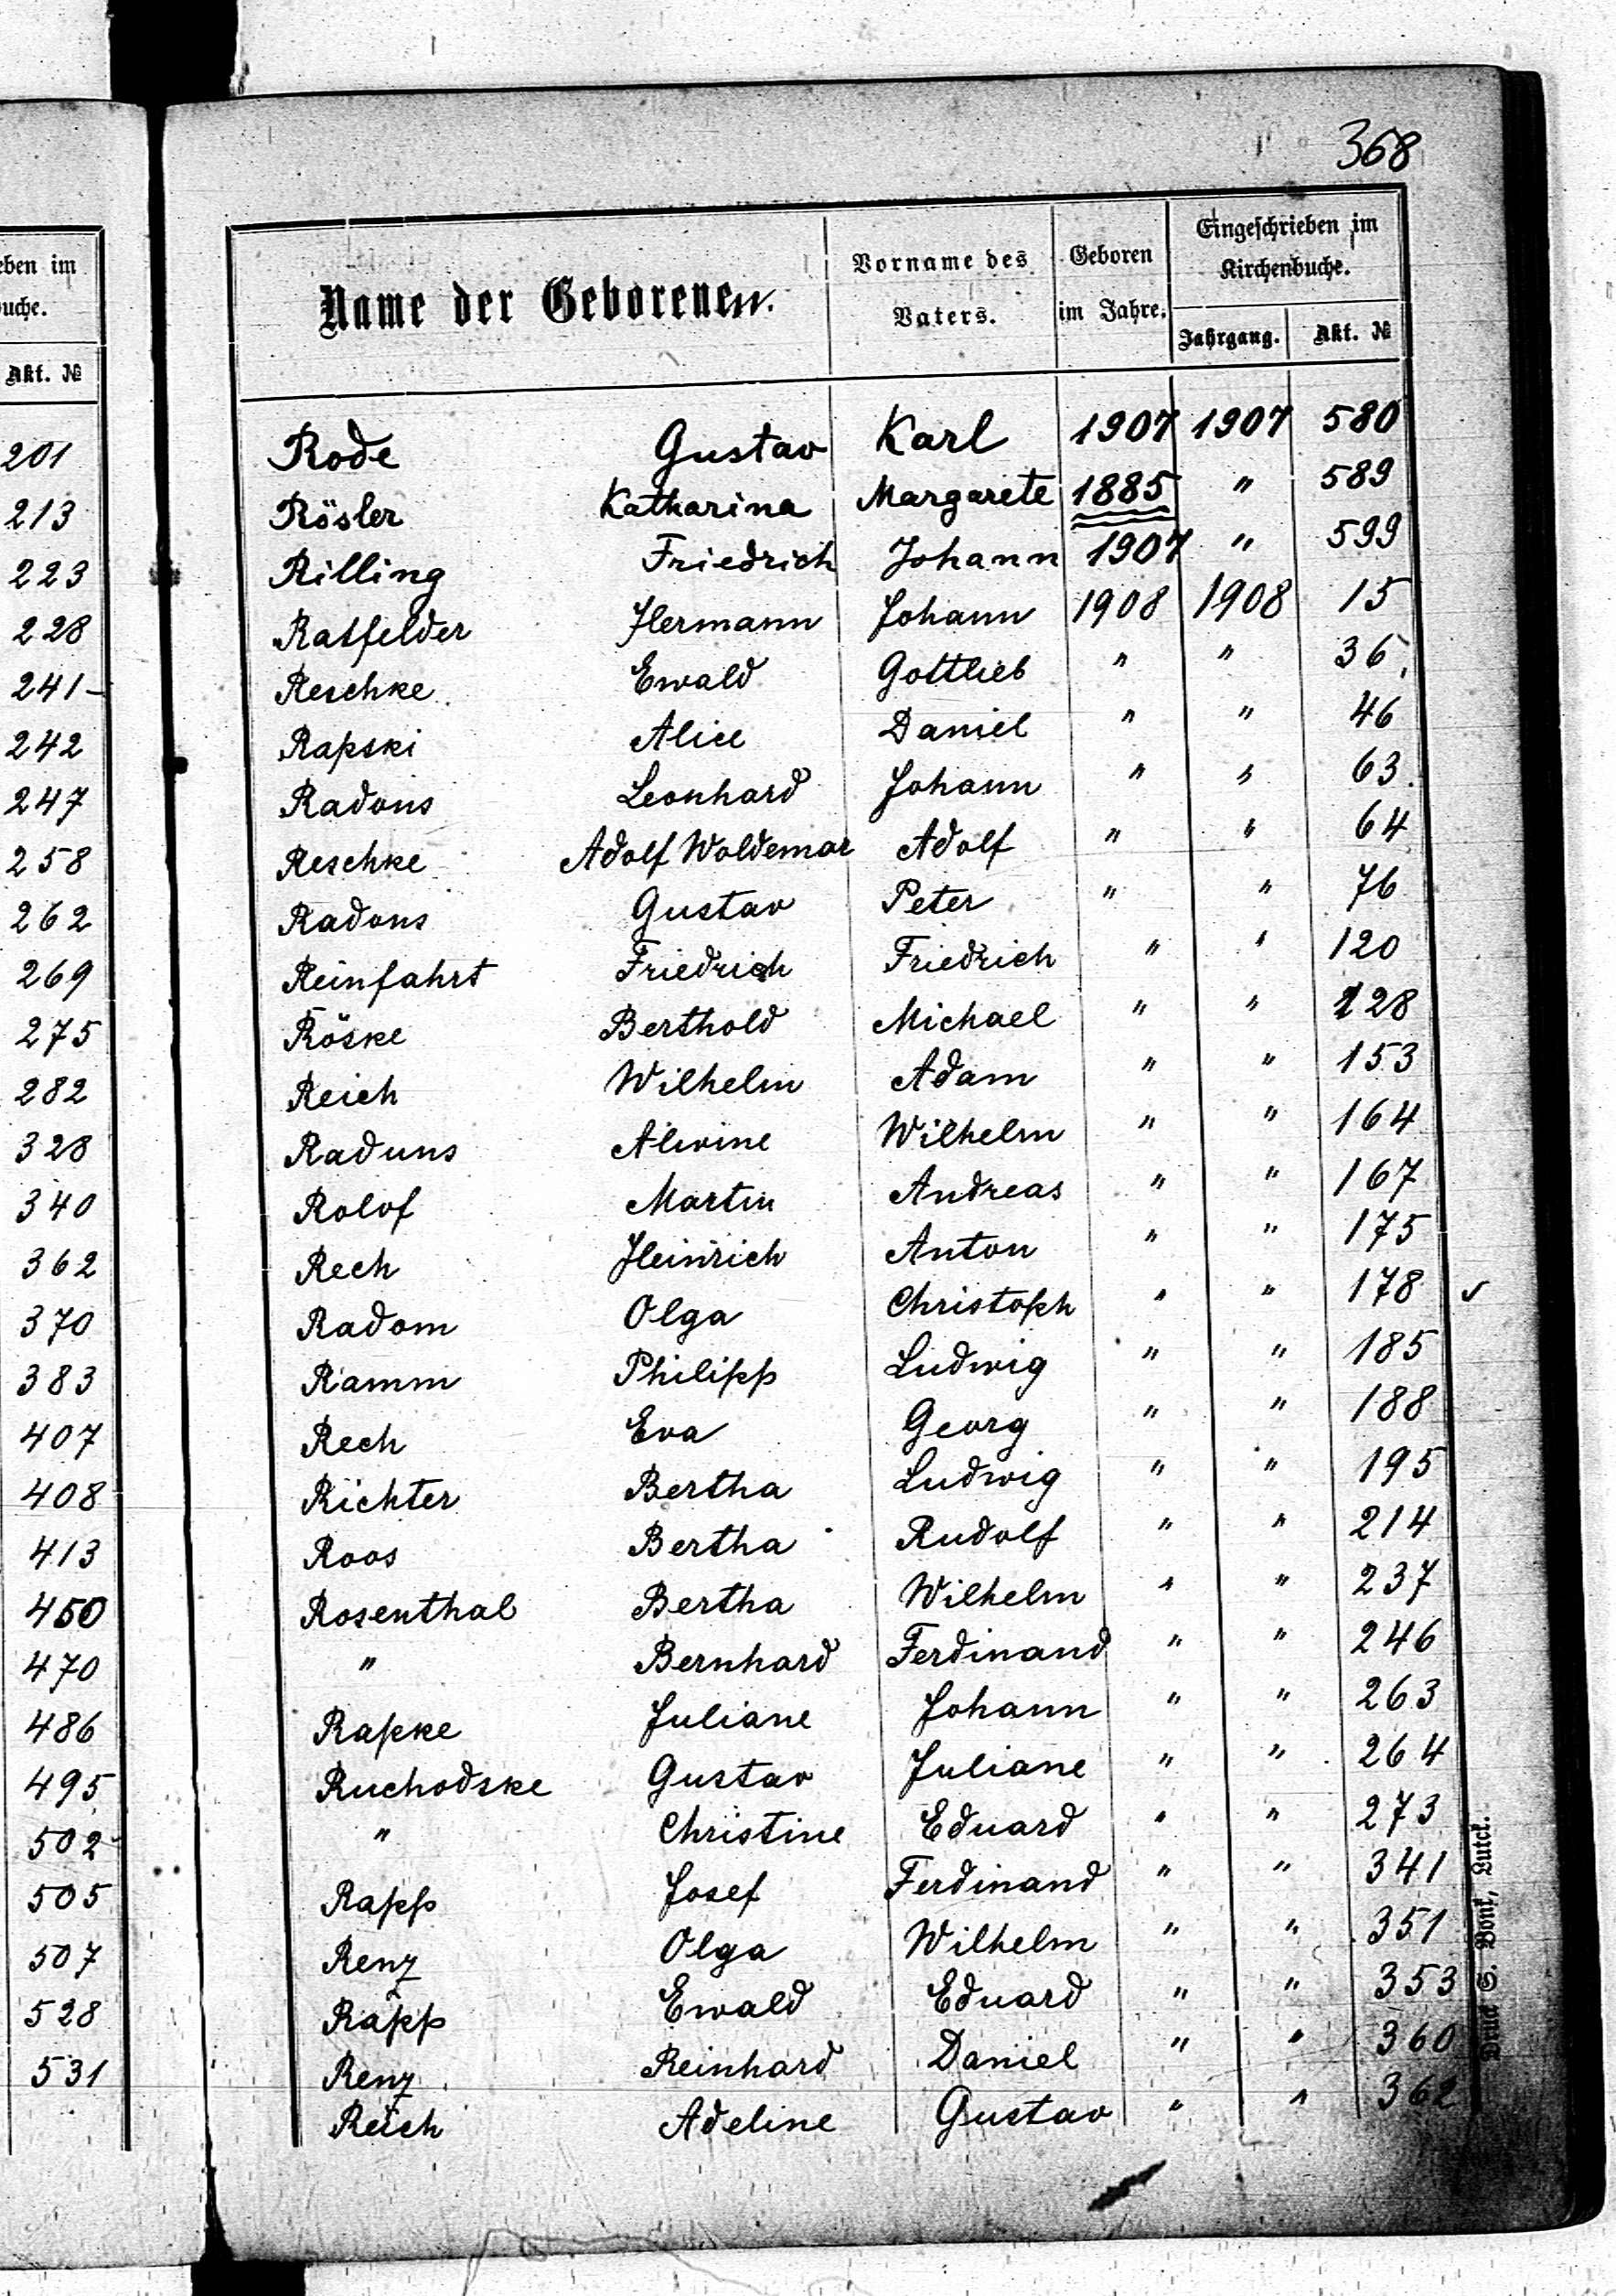 368
eben im
uche.
Akt. №
201
213
223
228
241-
242
247
258
262
269
275
282
328
340
362
370
383
407
408
413
450
470
486
495
502
505
507
528
531
Name der Geborenen. Vorname des Vaters. Geboren im Jahre. Eingeschrieben im Kirchenbuche.
Jahrgang. Akt. №
Rode Gustav Karl 1907 1907 580
Rösler Katharina Margarete 1885 " 589
Rilling Friedrich Johann 1907 " 599
Ratfelder Hermann Johann 1908 1908 15
Reschke Ewald Gottlieb " " 36
Rapski Alice Daniel " " 46
Radons Leonhard Johann " " 63
Reschke Adolf Woldemar Adolf " " 64
Radons Gustav Peter " " 76
Reinfahrt Friedrich Friedrich " " 120
Röske Berthold Michael " " 128
Reich Wilhelm Adam " " 153
Raduns Alwine Wilhelm " " 164
Rolof Martin Andreas " " 167
Rech Heinrich Anton " " 175
Radom Olga Christoph " " 178 ✓
Ramm Philipp Ludwig " " 185
Rech Eva Georg " " 188
Richter Bertha Ludwig " " 195
Roos Bertha Rudolf " " 214
Rosenthal Bertha Wilhelm " " 237
" Bernhard Ferdinand " " 246
Rapke Juliane Johann " " 263
Ruchodske Gustav Juliane " " 264
" Christine Eduard " " 273
Rapp Josef Ferdinand " " 341
Renz Olga Wilhelm " " 351
Rapp Ewald Eduard " " 353
Renz Reinhard Daniel " " 360
Reich Adeline Gustav " " 362
Druck S. Bonk, Lutck.